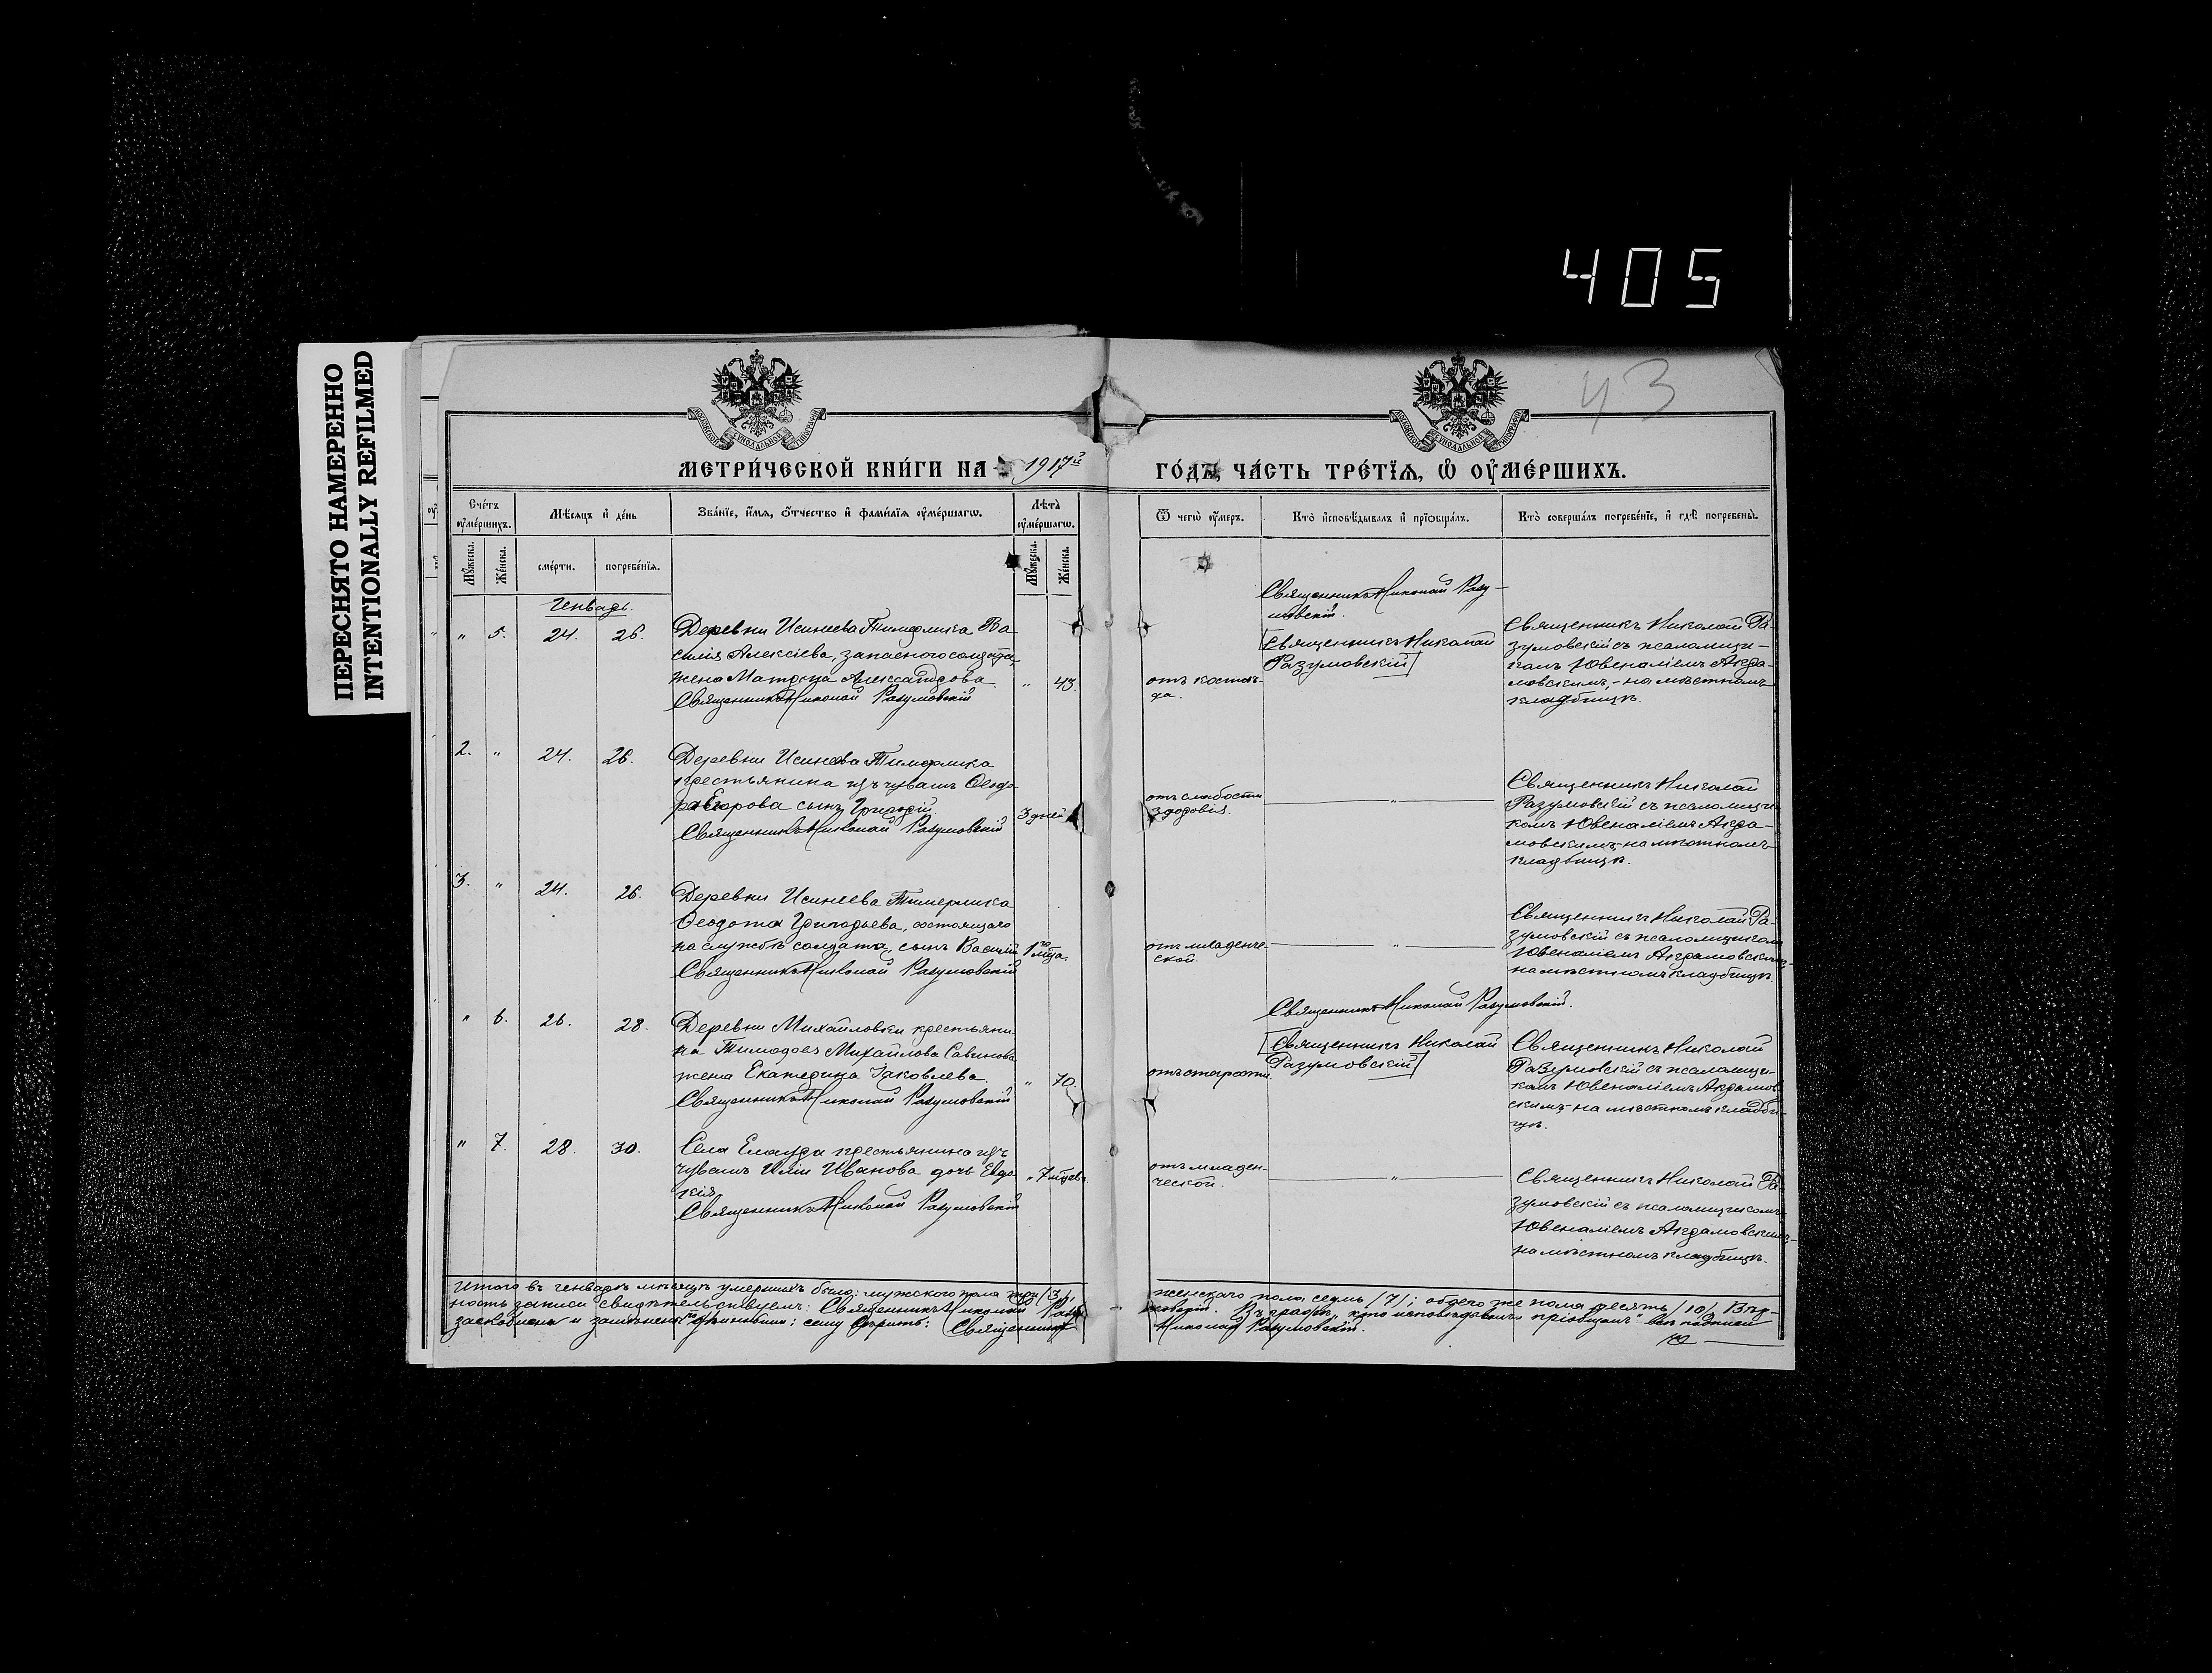 405
ПЕРЕСНЯТО НАМЕРЕННО
INTENTIONALLY REFILMED
43
МОСКОВСКОЙ СѴНОДАЛЬНОЙ ТИПОГРАФІИ
МОСКОВСКОЙ СѴНОДАЛЬНОЙ ТИПОГРАФІИ
МЕТРИ́ЧЕСКОЙ КНИ́ГИ НА 1917й
ГО́ДЪ, ЧА́СТЬ ТРЕ́ТЇѦ, Ѡ҆ ОУ҆МЕ́РШИХЪ.
Сче́тъ оу҆ме́ршихъ.
Мѣ́сѧцъ и҆ де́нь
Зва́нїе, и҆́мѧ, о҆́тчество и҆ фами́лїѧ оу҆ме́ршагѡ.
Лѣ́та оу҆ме́ршагѡ.
Ѿ чегѡ̀ оу҆́меръ.
Кто̀ и҆сповѣ́дывалъ и҆ прїѡбща́лъ.
Кто̀ соверша́лъ погребе́нїе, и҆ гдѣ̀ погребены̀.
Му́жеска.
Же́нска.
сме́рти.
погребе́нїѧ.
Му́жеска.
Же́нска.
Генварь.
" 5. 24. 26.
Деревни Исинеева Тимерлика Ва-
силія Алексіева, запасного солдата,
жена Матрона Александрова
Священникъ Николай Разумовскій
" 43.
отъ костоѣ-
да.
Священникъ Николай Разу-
мовскій.
[Священникъ Николай
Разумовскій]
Священникъ Николай Ра-
зумовскій съ псаломщи-
комъ Ювеналіемъ Акра-
мовскимъ, - на мѣстномъ
кладбищѣ.
2. " 24. 26.
Деревни Исинеева Тимерлика
крестьянина изъ чувашъ Ѳеодо-
ра Егорова сынъ Григорій
Священникъ Николай Разумовскій
3 дней
отъ слабости
здоровія.
"
Священникъ Николай
Разумовскій съ псаломщи-
комъ Ювеналіемъ Акра-
мовскимъ, - на мѣстномъ
кладбищѣ.
3. " 24. 26.
Деревни Исинеева Тимерлика
Ѳеодота Григорьева, состоящаго
на службѣ солдата, сынъ Василій
Священникъ Николай Разумовскій
1го мѣца.
отъ младенче-
ской.
"
Священникъ Николай Ра-
зумовскій съ псаломщикомъ
Ювеналіемъ Акрамовскимъ,-
на мѣстномъ кладбищѣ.
" 6. 26. 28.
Деревни Михайловки крестьяни-
на Тимоѳея Михайлова Савинова
жена Екатерина Іаковлева.
Священникъ Николай Разумовскій
" 70.
отъ старости.
Священникъ Николай Разумовскій.
[Священникъ Николай
Разумовскій]
Священникъ Николай
Разумовскій съ псаломщи-
комъ Ювеналіемъ Акрамов-
скимъ - на мѣстномъ кладби-
щѣ.
" 7. 28. 30.
Села Елаура крестьянина изъ
чувашъ Иліи Иванова дочь Евдо-
кія
Священникъ Николай Разумовскій
" 7 мѣсцевъ.
отъ младен-
ческой.
"
Священникъ Николай Ра-
зумовскій съ псаломщикомъ
Ювеналіемъ Акрамовскимъ,-
на мѣстномъ кладбищѣ.
Итого въ генварѣ мѣсяцѣ умершихъ было: мужского пола три /3/,
женскаго пола семь /7/; обоего же пола десять /10/. Вѣр-
ность записи свидѣтельствуемъ: Священникъ Николай Разу-
мовскій. Въ графѣ: "кто исповѣдовалъ и пріобщалъ" всѣ подписи
заскоблены и замѣнены; сему вѣрить: Священникъ
Николай Разумовскій.